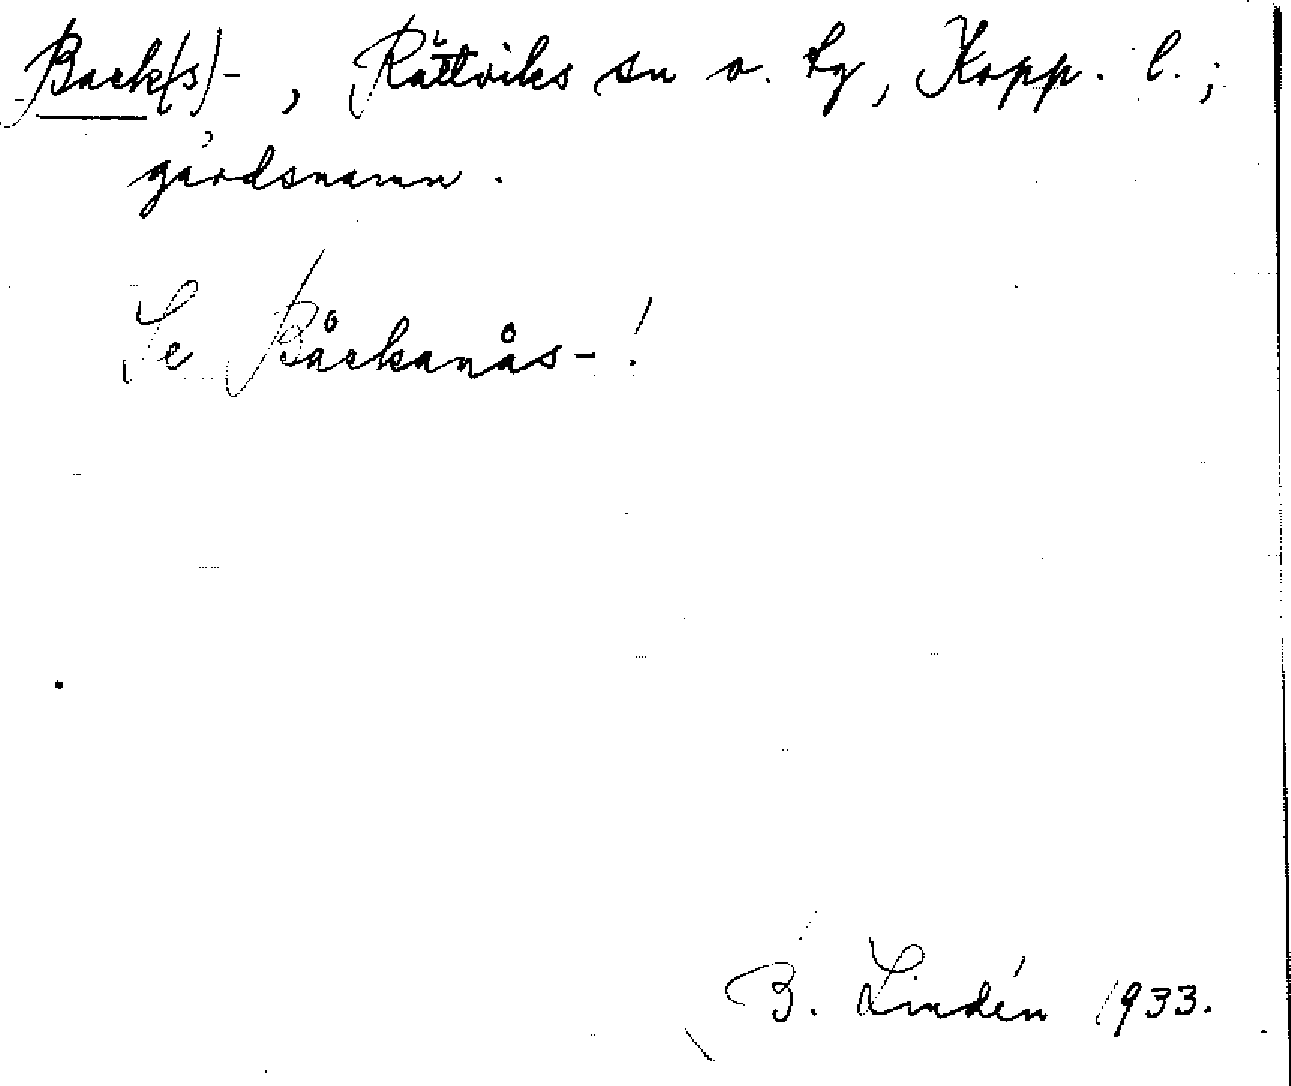 Back(s)-, Rättviks sn o. tg, Kopp. l.;
gårdsnamn.
Se Båckanås-!
B. Lindén 1933.